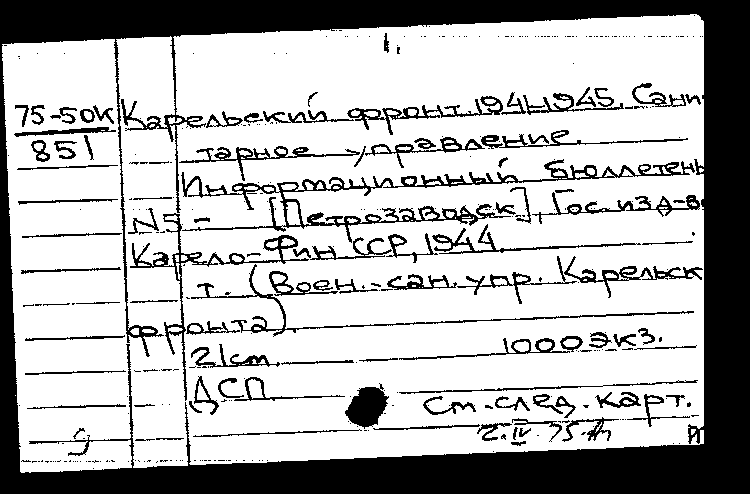 1.
75-50К Карельский фронт. 1941-1945. Сани-
851 тарное управление.
Информационный бюллетень
N5- [Петрозаводск], Гос. изд-во
Карело-Фин ССР, 1944.
т. (Воен.-сан. упр. Карельск
фронта).
21см. 1000экз.
ДСП
См.след.карт.
2.IV.75.